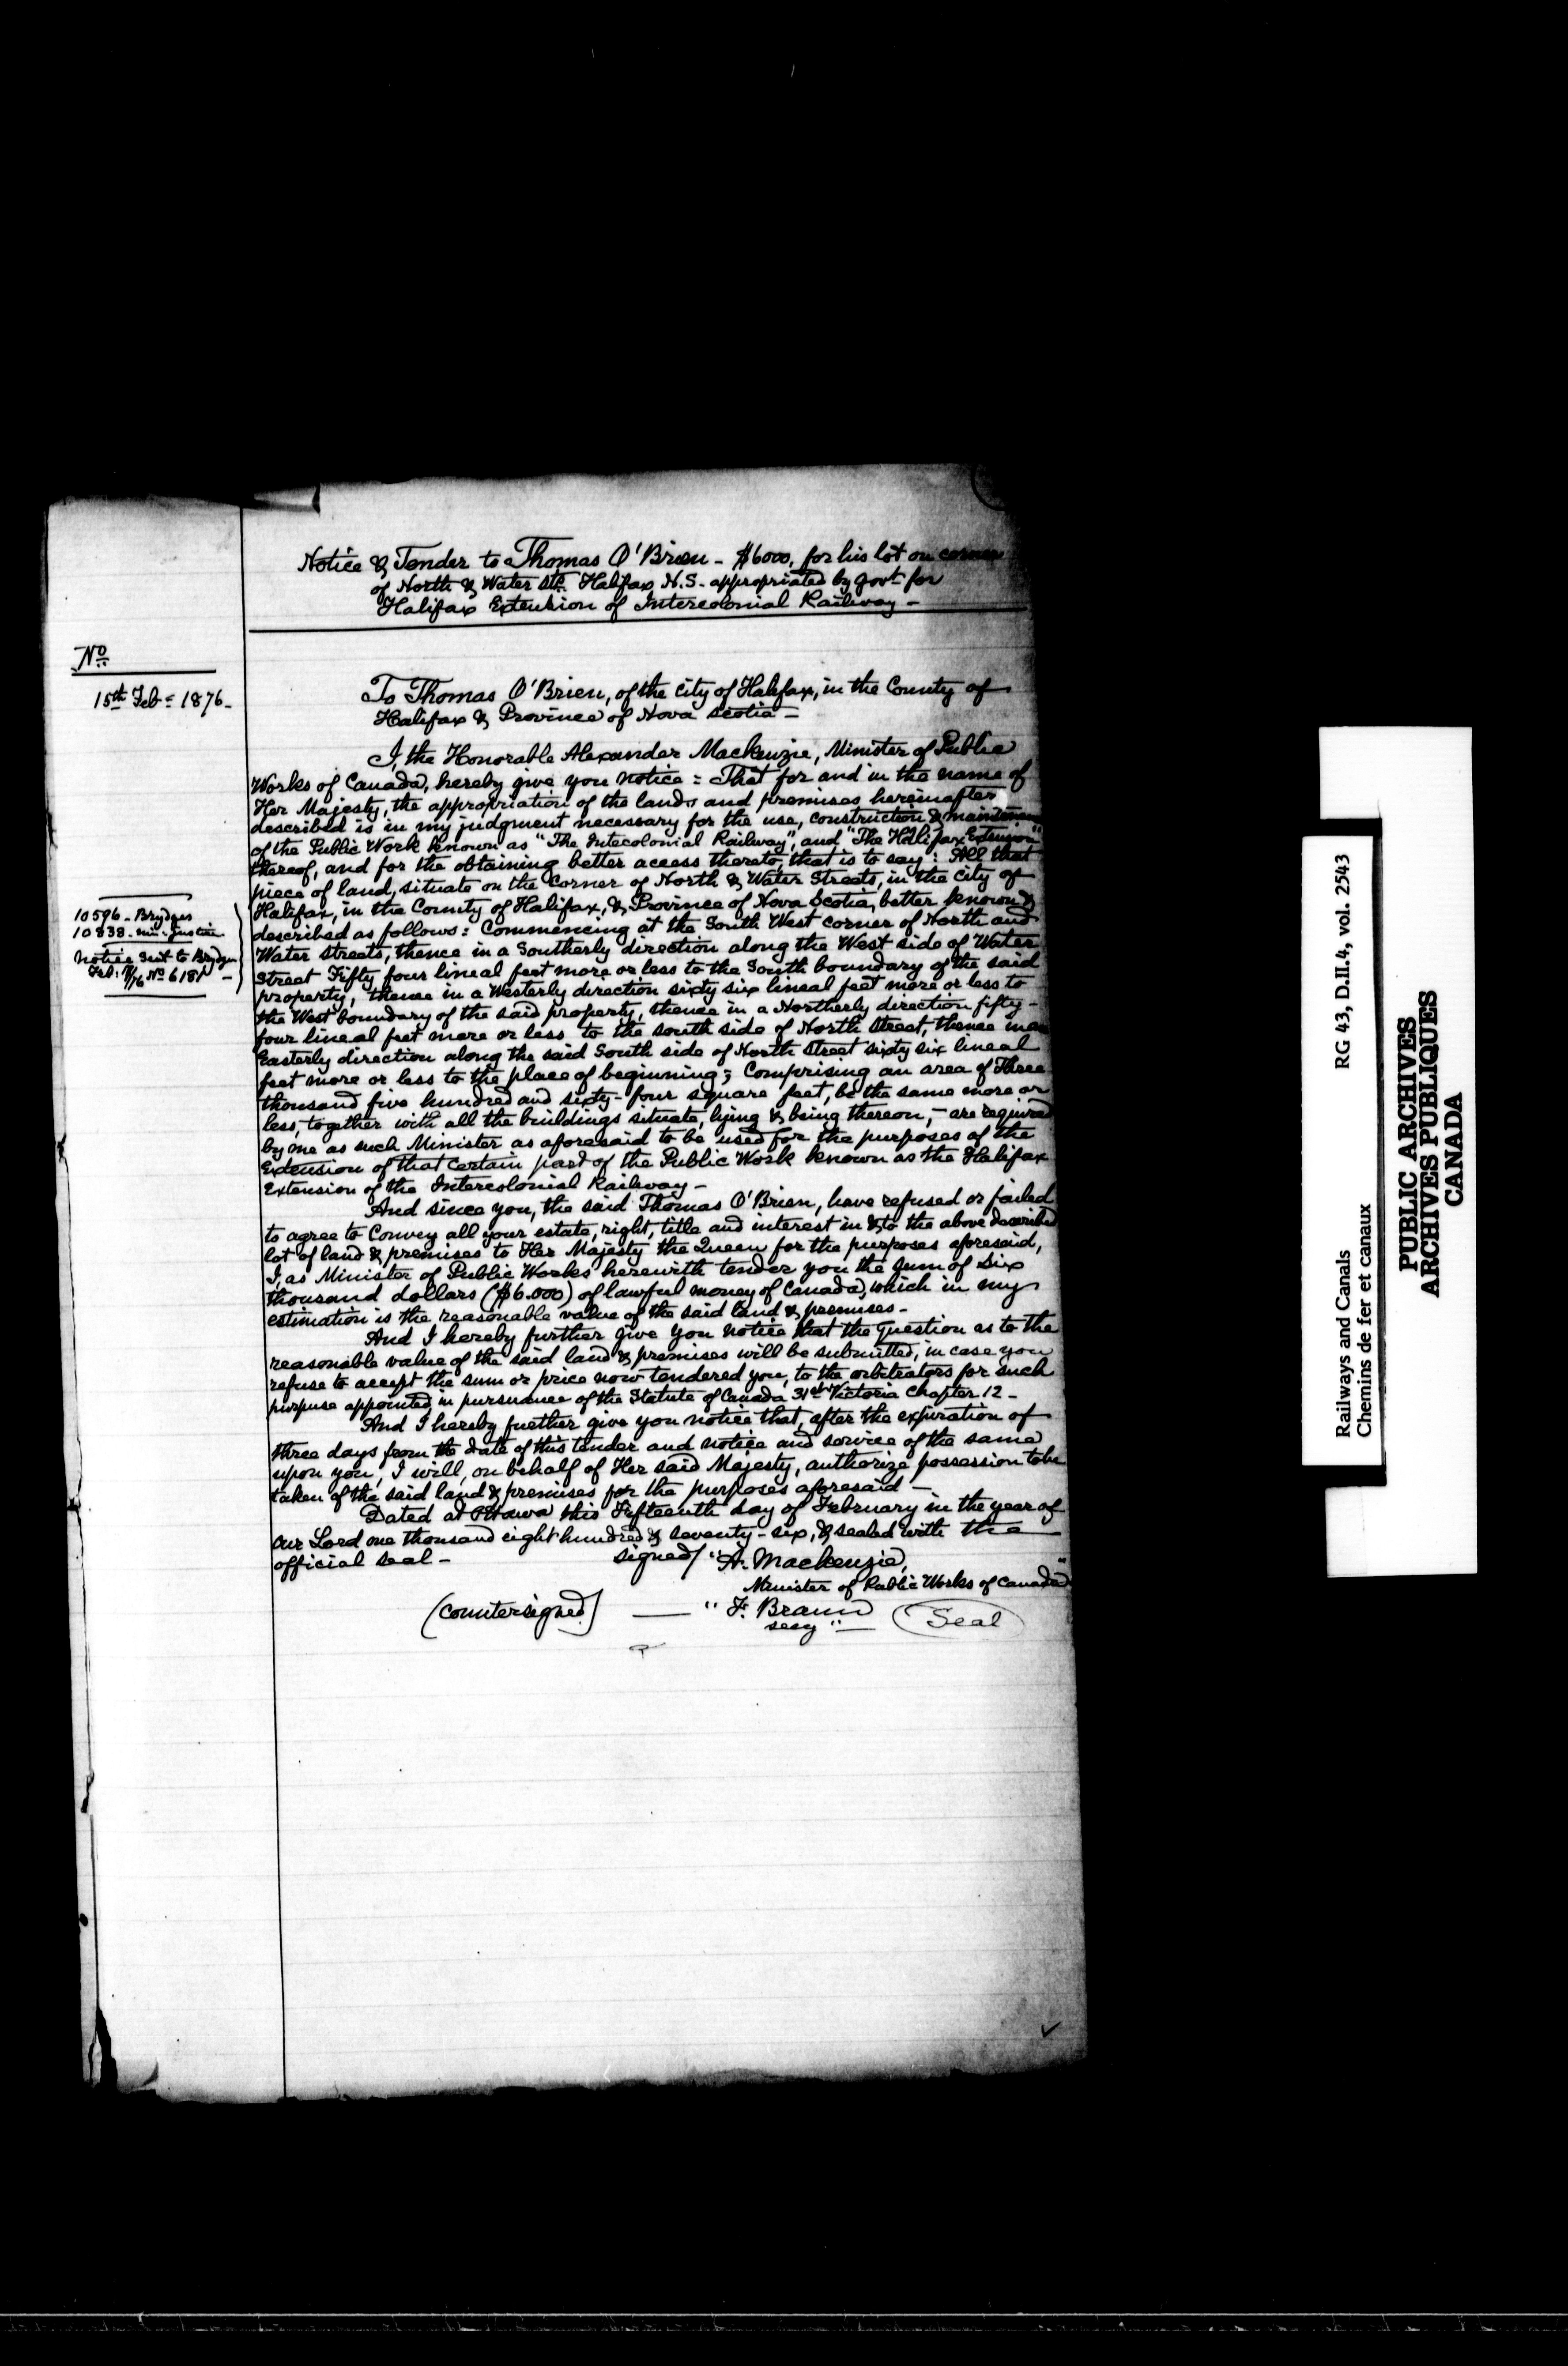 Notice & Tender to Thomas O'Brien - $6000, for his lot on corner
of North & Water Sts. Halifax N.S. appropriated by Govt for
Halifax Extension of Intercolonial Railway -
No
15th Feb = 1876 -
To Thomas O'Brien, of the City of Halifax, in the County of
Halifax & Province of Nova Scotia -
I, the Honorable Alexander Mackenzie, Minister of Public
Works of Canada, hereby give you notice: That for and in the name of
Her Majesty, the appropriation of the lands and premises hereinafter
described is in my judgment necessary for the use, construction & maintenance
of the Public Work known as "The Intecolonial Railway", and "The Halifax Extension"
thereof, and for the obtaining better access thereto, that is to say: All that
piece of land, situate on the Corner of North & Water Streets, in the City of
Halifax, in the County of Halifax, & Province of Nova Scotia, better known &
described as follows: Commencing at the South West corner of North and
Water streets, thence in a Southerly direction along the West side of Water
Street Fifty four lineal feet more or less to the South boundary of the said
property, thence in a Westerly direction sixty six lineal feet more or less to
the West boundary of the said property, thence in a Northerly direction fifty-
four lineal feet more or less to the south side of North Street, thence in an
Easterly direction along the said South side of North Street sixty six lineal
feet more or less to the place of beginning; Comprising an area of Three
thousand five hundred and sixty-four square feet, be the same more or
less, together with all the buildings situate, lying & being thereon, - are required
by me as such Minister as aforesaid to be used for the purposes of the
Extension of that certain part of the Public Work known as the Halifax
Extension of the Intercolonial Railway -
10596 - Brydges
10838 - Min. Justice
Notice sent to Brydges
Feb: /76 No 618
And since you, the said Thomas O'Brien, have refused or failed
to agree to Convey all your estate, right, title and interest in & to the above described
lot of land & premises to Her Majesty the Queen for the purposes aforesaid,
I, as Minister of Public Works herewith tender you the sum of Six
thousand dollars ($6.000) of lawful money of Canada, which in my
estimation is the reasonable value of the said land & premises -
And I hereby further give you notice that the question as to the
reasonable value of the said land & premises will be submitted, in case you
refuse to accept the sum or price now tendered you, to the arbitrators for such
purpuse appointed, in pursuance of the Statute of Canada 31st Victoria Chapter 12 -
And I hereby further give you notice that, after the expiration of
three days from the date of this tender and notice and service of the same
upon you, I will, on behalf of Her said Majesty, authorize possession to be
taken of the said land & premises for the purposes aforesaid -
Dated at Ottawa this Fifteenth day of February in the year of
Our Lord one thousand eight hundred & seventy-six, & sealed with the
official seal -
signed/ "A. Mackenzie,
Minister of Public Works of Canada"
(Countersigned) - "F. Braun
secy"
Seal
Railways and Canals RG 43, D.II.4, vol. 2543
Chemins de fer et canaux
PUBLIC ARCHIVES
ARCHIVES PUBLIQUES
CANADA